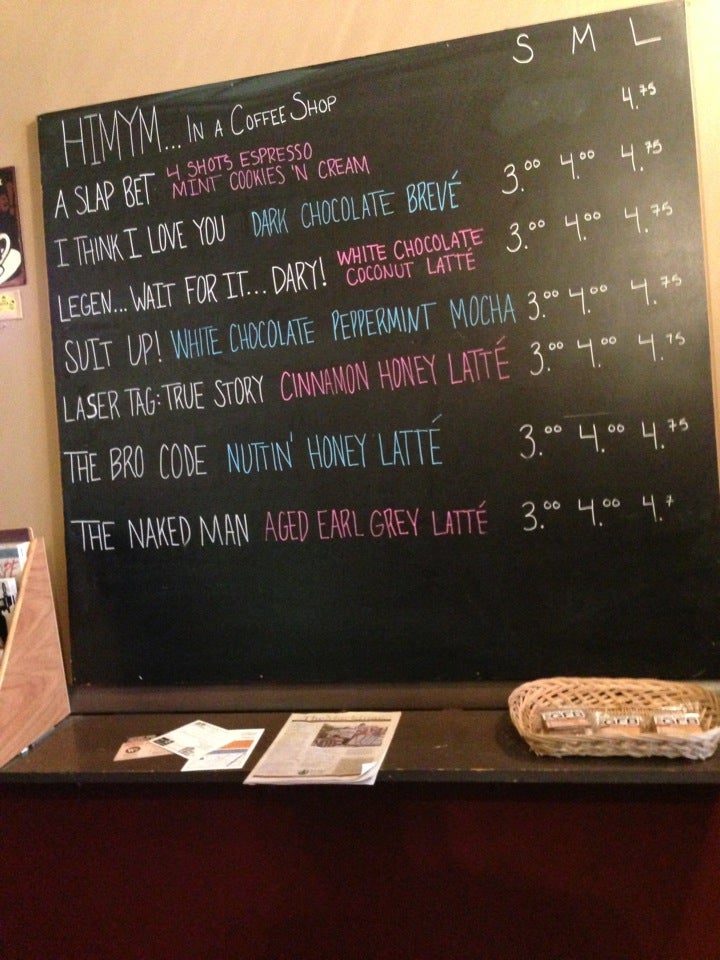 S M L
HIMYM... IN A COFFEE SHOP
4.75
A SLAP BET 4 SHOTS ESPRESSO
MINT COOKIES 'N CREAM
3.00 4.00 4.75
I THINK I LOVE YOU DARK CHOCOLATE BREVÉ
3.00 4.00 4.75
LEGEN...WAIT FOR IT...DARY! WHITE CHOCOLATE
COCONUT LATTÉ
SUIT UP! WHITE CHOCOLATE PEPPERMINT MOCHA 3.00 4.00 4.75
LASER TAG: TRUE STORY CINNAMON HONEY LATTÉ 3.00 4.00 4.75
THE BRO CODE NUTTIN' HONEY LATTÉ 3.00 4.00 4.75
THE NAKED MAN AGED EARL GREY LATTÉ 3.00 4.00 4.7